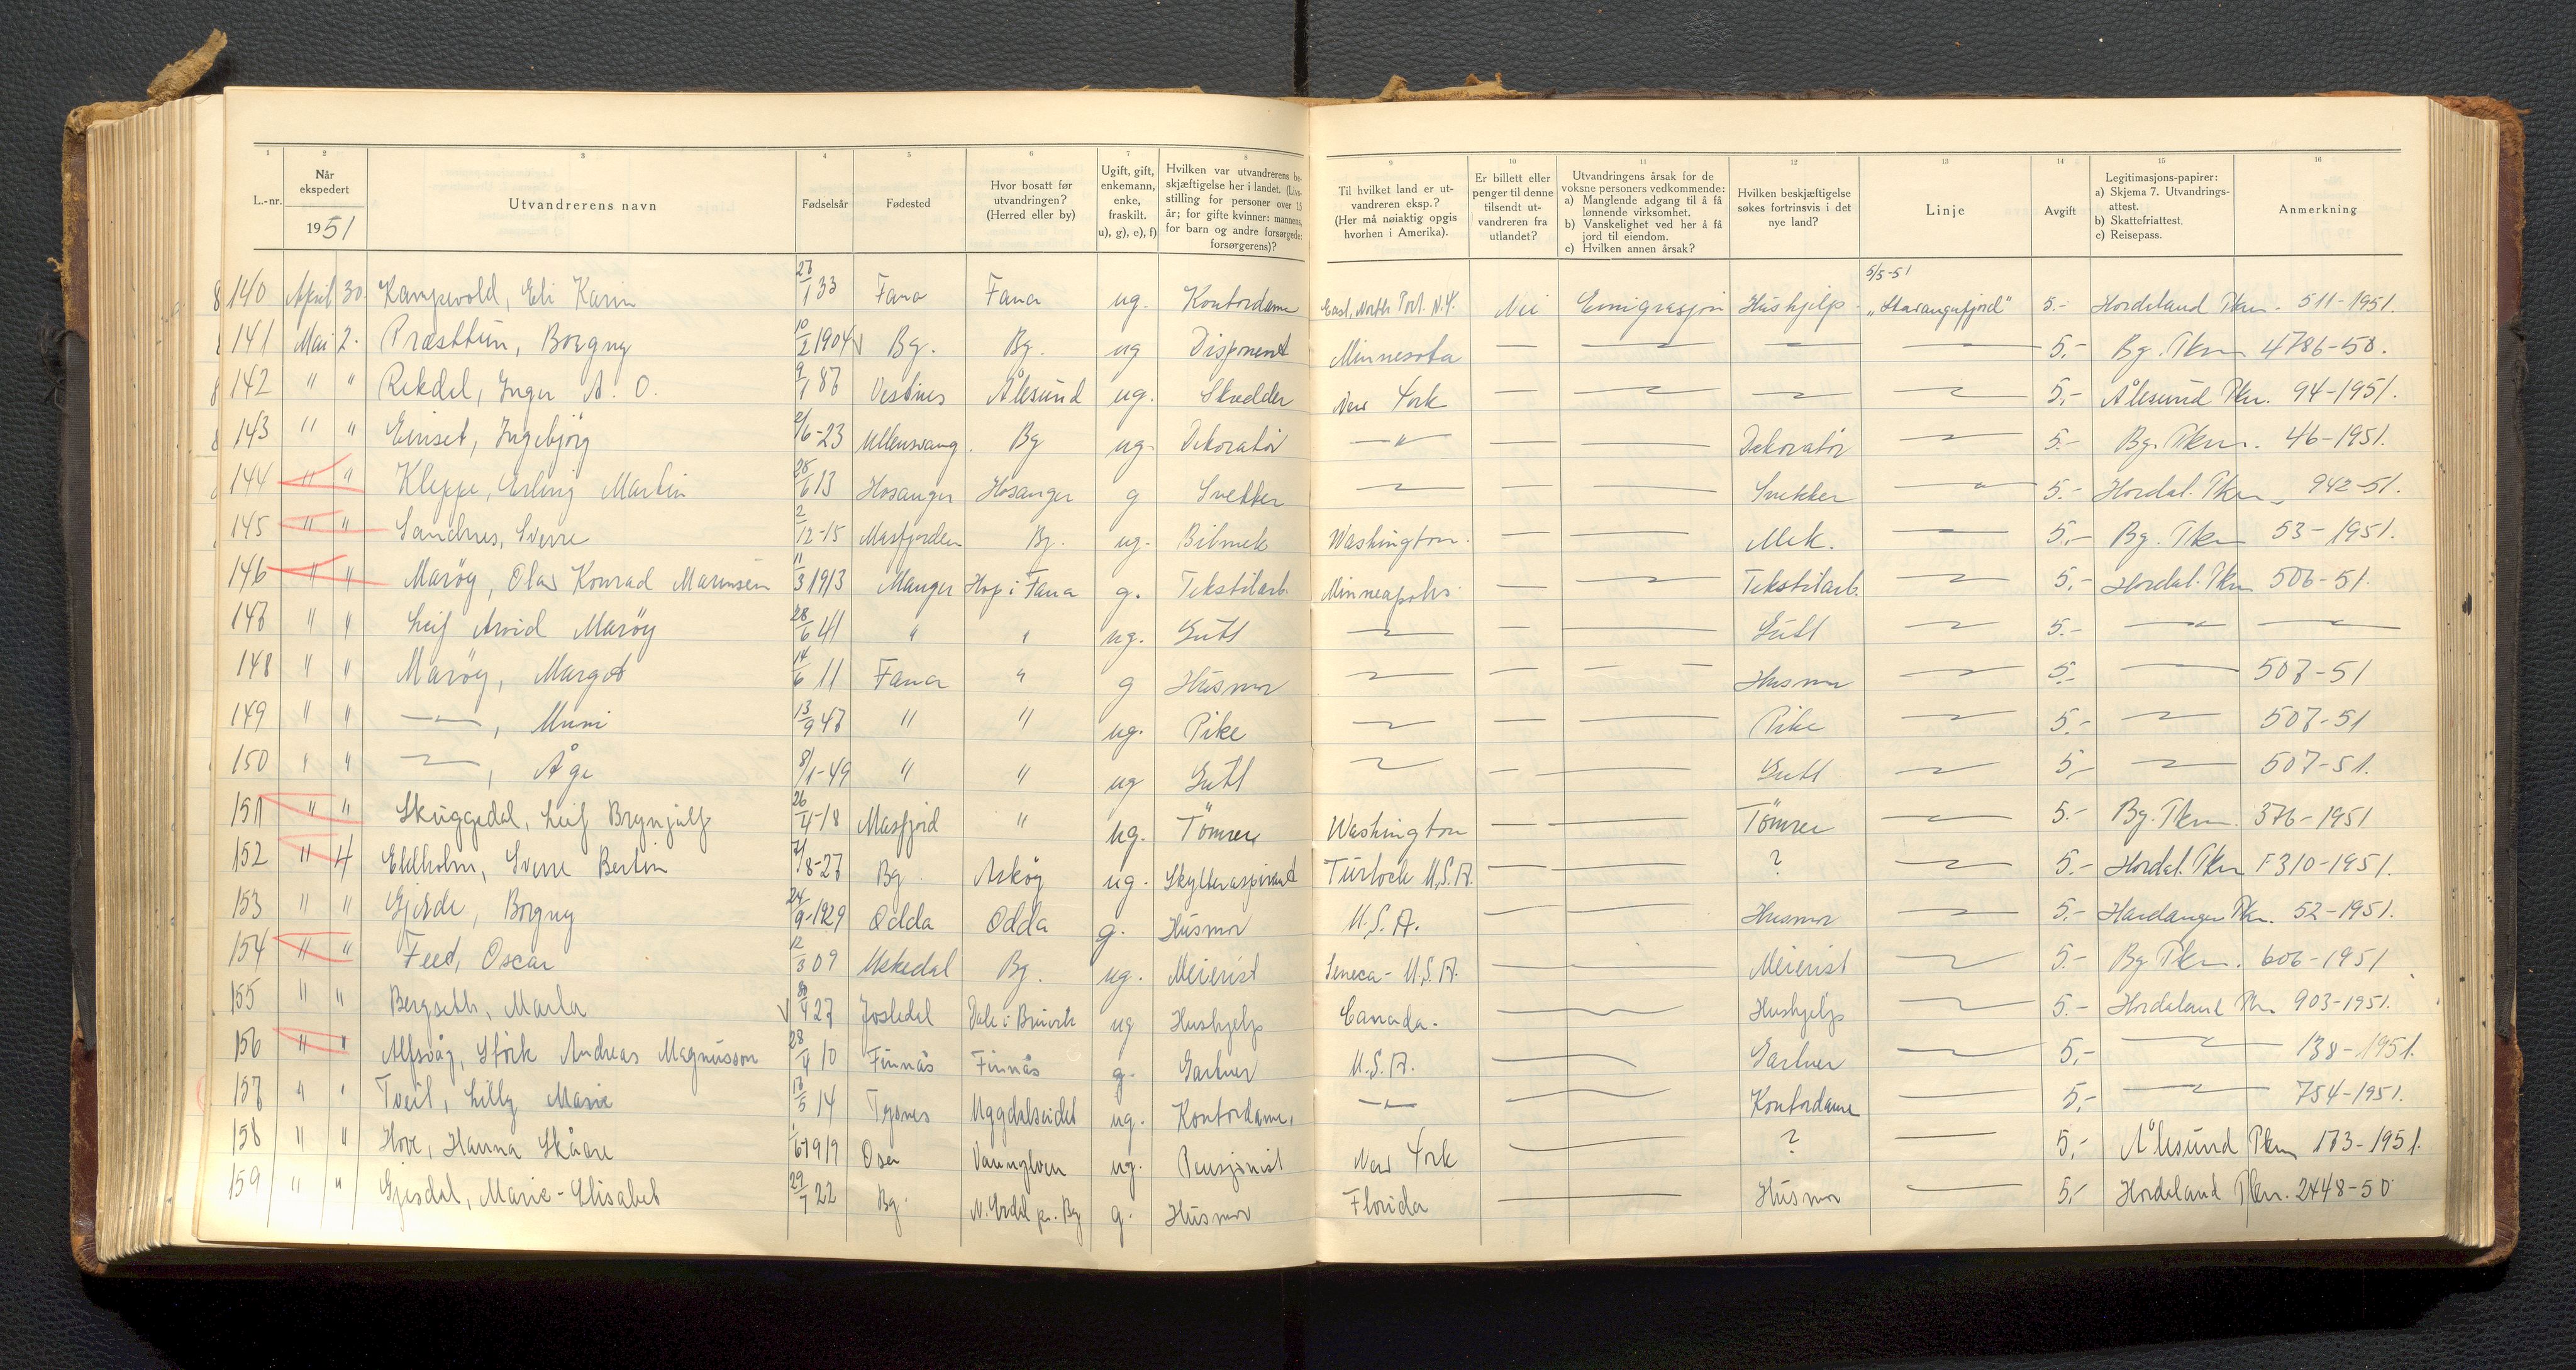 1 2 3 4 5 6 7 8 9 10 11 12 13 14 15 16
L.-nr. Når ekspedert 1951 Utvandrerens navn Fødselsår Fødested Hvor bosatt før utvandringen? (Herred eller by) Ugift, gift, enkemann, enke, fraskilt. u), g), e), f) Hvilken var utvandrerens beskjæftigelse her i landet. (Livsstilling for personer over 15 år; for gifte kvinner: mannens, for barn og andre forsørgede: forsørgerens)? Til hvilket land er utvandreren eksp.? (Her må nøiaktig opgis hvorhen i Amerika). Er billett eller penger til denne tilsendt utvandreren fra utlandet? Utvandringens årsak for de voksne personers vedkommende: a) Manglende adgang til å få lønnende virksomhet. b) Vanskelighet ved her å få jord til eiendom. c) Hvilken annen årsak? Hvilken beskjæftigelse søkes fortrinsvis i det nye land? Linje Avgift Legitimasjons-papirer: a) Skjema 7. Utvandringsattest. b) Skattefriattest. c) Reisepass. Anmerkning
5/5-51
140 April 30. Kampevold, Eli Karin 27/1 33 Fana Fana ug. Kontordame East, North Port. N.Y. Nei Emigrasjon Hushjelp "Stavangerfjord" 5.- Hordaland Pkm. 511-1951.
141 Mai 2. Præsttun, Borgny 10/2 1904 Bg. Bg. ug Disponent Minnesota — — — — 5.- Bg. Pkm 4786-50.
142 " " Rekdal, Inger A. O. 9/1 87 Vestnes Ålesund ug. Skredder New York — — — — 5.- Ålesund Pkm. 94-1951.
143 " " Einset, Ingebjörg 2/6-23 Ullensvang Bg ug. Dekoratör —"— — — Dekoratör — 5.- Bg. Pkm. 46-1951.
144 " " Kleppe, Erling Martin 25/6 13 Hosanger Hosanger g Snekker — — — Snekker — 5.- Hordal. Pkm. 942-51.
145 " " Sandnes, Sverre 2/12-15 Masfjorden Bg. ug. Bilmek Washington. — — Mek. — 5.- Bg. Pkm 53-1951.
146 " " Maröy, Olav Konrad Marensen 11/3 1913 Manger Hop i Fana g. Tekstilarb. Minneapolis — — Tekstilarb. — 5.- Hordal. Pkm 506-51.
147 " " Leif Arvid Maröy 28/6 41 " " ug. Gutt — — — Gutt — 5.- — —
148 " " Maröy, Margot 14/6 11 Fana " g Husmor — — — Husmor — 5.- — 507-51
149 " " —"—, Muni 13/9 47 " " ug. Pike — — — Pike — 5.- — 507-51
150 " " —, Åge 8/1-49 " " ug Gutt — — — Gutt — 5.- — 507-51.
151 " " Skuggedal, Leif Brynjulf 26/4-18 Masfjord " ug. Tömrer Washington — — Tömrer — 5.- Bg. Pkm. 376-1951
152 " 4 Ekholm, Sverre Bertin 7/8-27 Bg Askøy ug. Skytteraspirant Turlock U.S.A. — — ? — 5.- Hordal. Pkm F310-1951.
153 " " Gjerde, Borgny 24/9-1929 Odda Odda g. Husmor U.S.A. — — Husmor — 5.- Hardanger Pkm. 52-1951.
154 " " Feed, Oscar 12/3 09 Uskedal Bg. ug. Meierist Seneca - U.S.A. — — Meierist — 5.- Bg Pkm. 606-1951
155 " " Bergseth, Marta 4 27 Jostedal Dale i Bruvik ug Hushjelp Canada. — — Hushjelp — 5.- Hordaland Pkm. 903-1951.
156 " " Alfsvåg, Störk Andreas Magnusson 28/4 10 Finnås Finnås g. Gartner U.S.A. — — Gartner — 5.- — 138-1951.
157 " " Tveit, Lilly Marie 5 14 Tysnes Uggdalseidet ug. Kontordame. —"— — — Kontordame — 5.- — 754-1951.
158 " " Hove, Hanna Skåre 1919 Vannylven ug. Pensjonist New York — — ? — 5.- Ålesund Pkm 173-1951.
159 " " Gjesdal, Marie-Elisabet 29/7 22 Bg. pr. Bg g. Husmor Florida — — Husmor — 5.- Hordaland Pkm. 2448-50